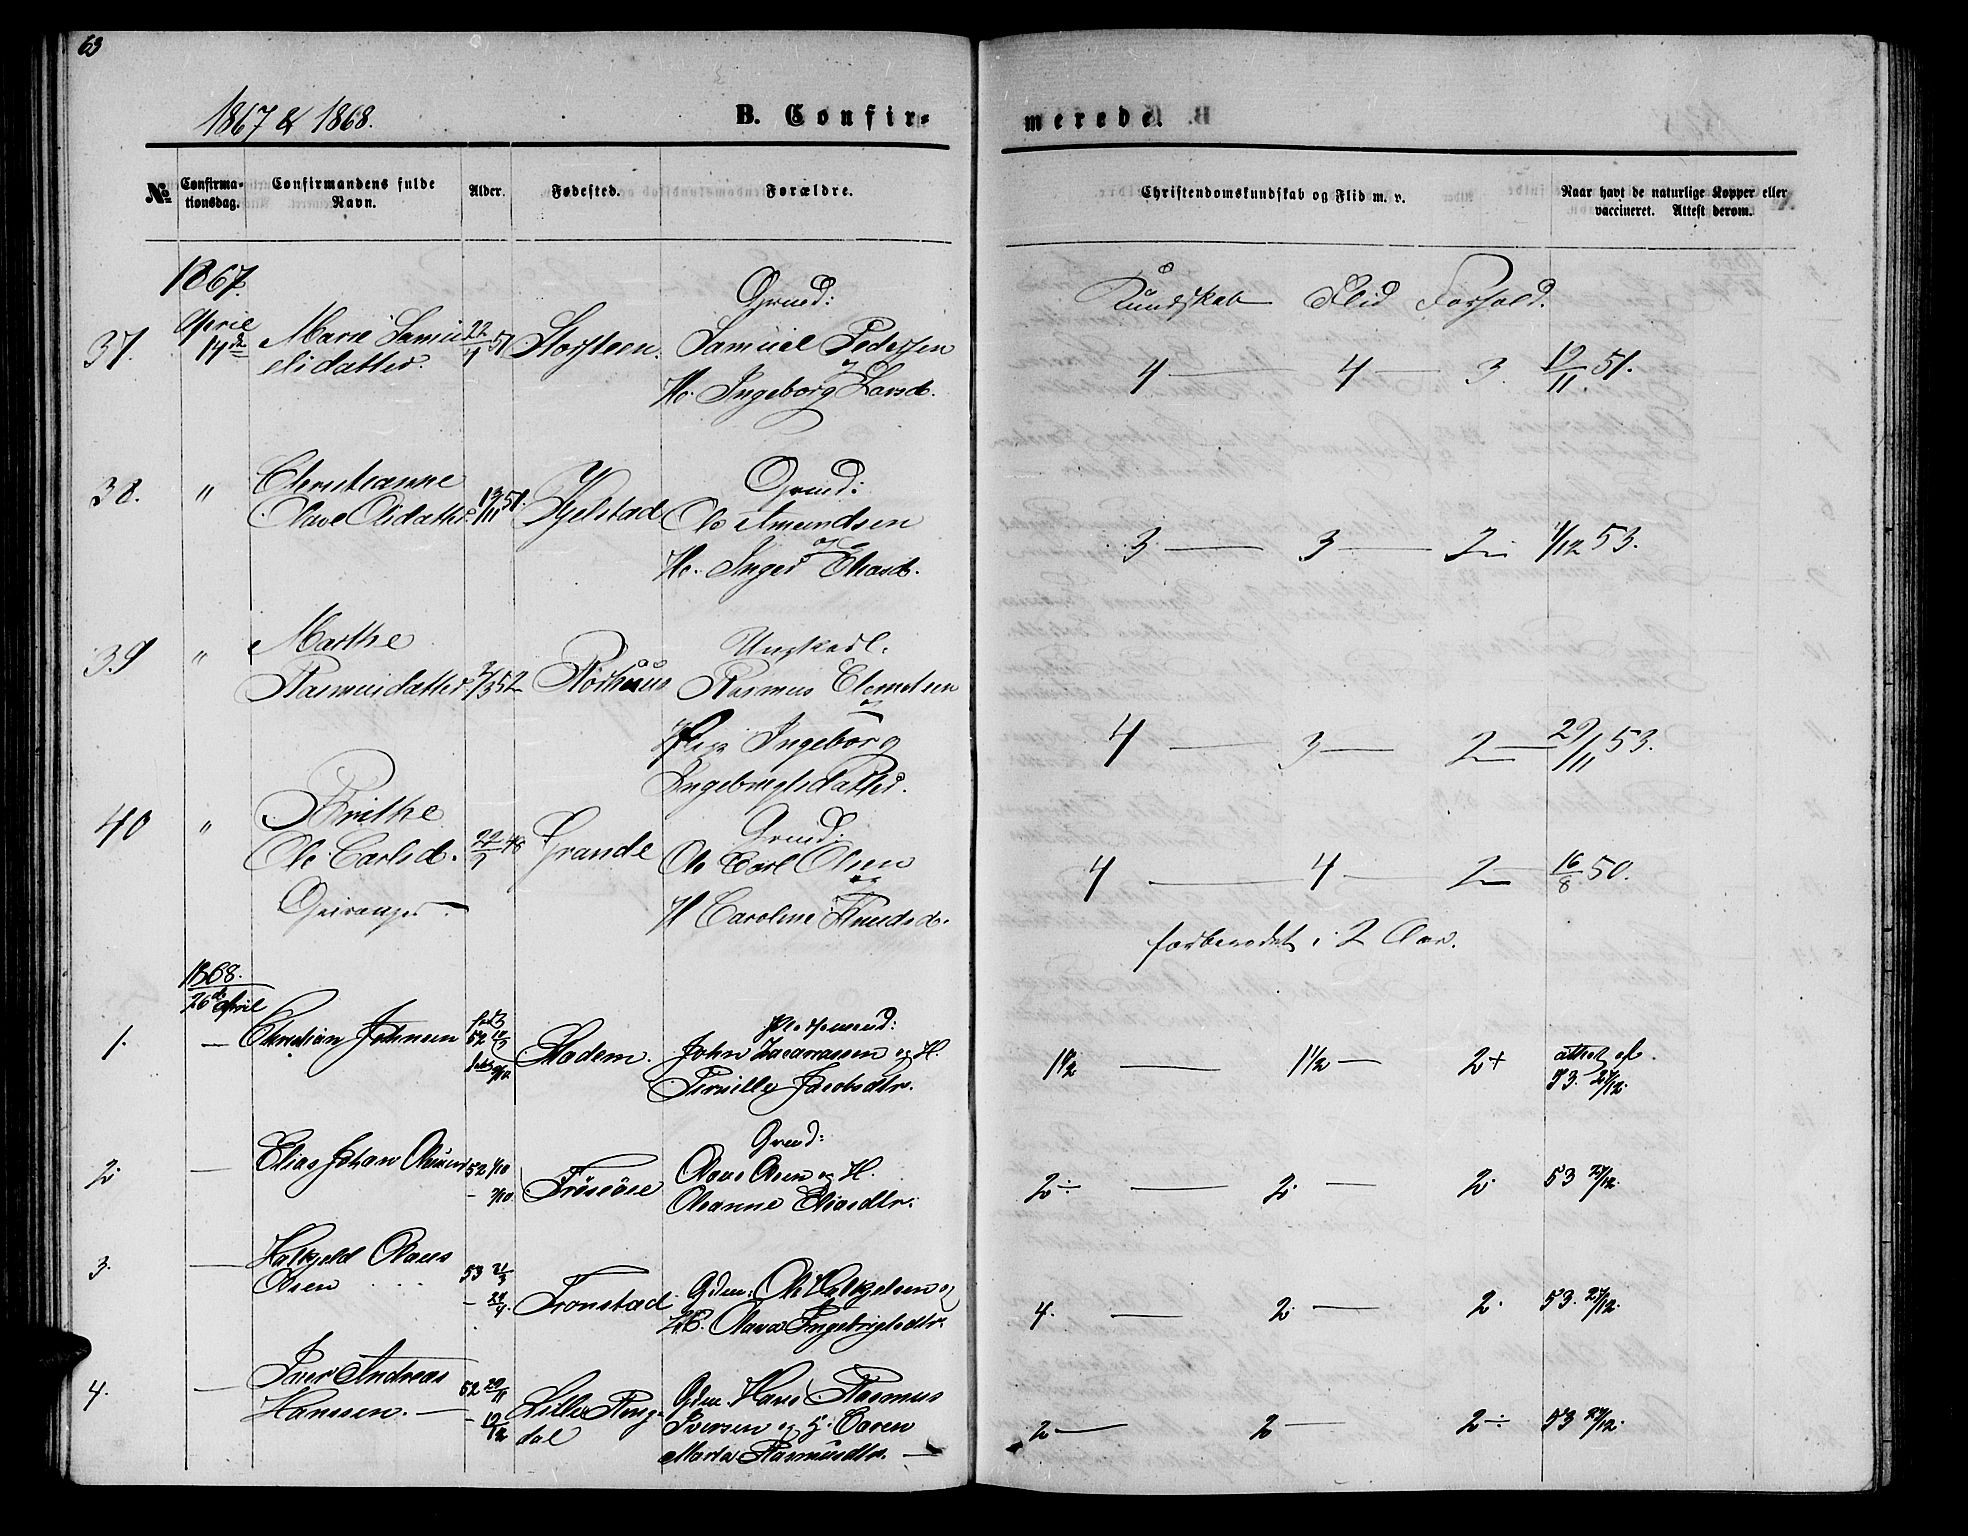 63
1867 & 1868.
B. Confir-
merede.
№
Confirma-
tionsdag.
Confirmandens fulde
Navn.
Alder.
Fødested.
Forældre.
Christendomskundskab og Flid m. v.
Naar havt de naturlige Kopper eller
vaccineret. Attest derom.
1867.
Kundskab Flid Forhold.
37.
April
14de
Marie Samu
elsdatter.
22/1 51
Storsteen.
Grmd:
Samuel Pedersen
og
H. Ingeborg Larsd.
4 — 4 — 3. 12/11 51.
38.
"
Olave Olsdatter
13/11 51.
Kjelstad
Grmd:
Ole Amundsen
og
H. Inger Eliasd.
3 — 3 — 2 — 1/12 53.
39
"
Marthe
Rasmusdatter
2/3 52
Rørhuus
Ungkarl.
Rasmus Clemetsen
og
Pige Ingeborg
Ingebrigtsdatter.
4 — 3 — 2 — 29/11 53.
40
"
Brithe
Ole Carlsd.
Geiranger
Grande
Grmd:
Ole Carl Olsen
og
H Caroline Knudsd.
4 — 4 — 2 — 16/8 50.
forberedet i 2 Aar.
1868.
26de April
1.
—
Christian Johnsen
Stadem.
Pldsmand:
John Zacariassen og H.
Pernille Jacobsdtr.
1½ — 1½ — 2+
attest af
53. 27/12.
2.
—
Elias Johan
52 1/10
Frøsøse
Grmd:
og H.
Olianne Eliasdtr.
2÷ — 2. — 2. 53 27/12.
3.
—
Halkjeld Olaus
Olsen
53 21/3
Tronstad
Gdm. Ole Halkjelsen og
H. Olava Ingebrigtsdtr.
4. — 2. — 2. 53. 27/12.
4.
—
Iver Andreas
Hanssen. —
52 20/11
- 19/12
Lille Ring-
dal
Gdm. Hans Rasmus
Iversen og H. Caren
Marta Rasmusdtr. —
2 — 2 — 2÷ 53 27/12.